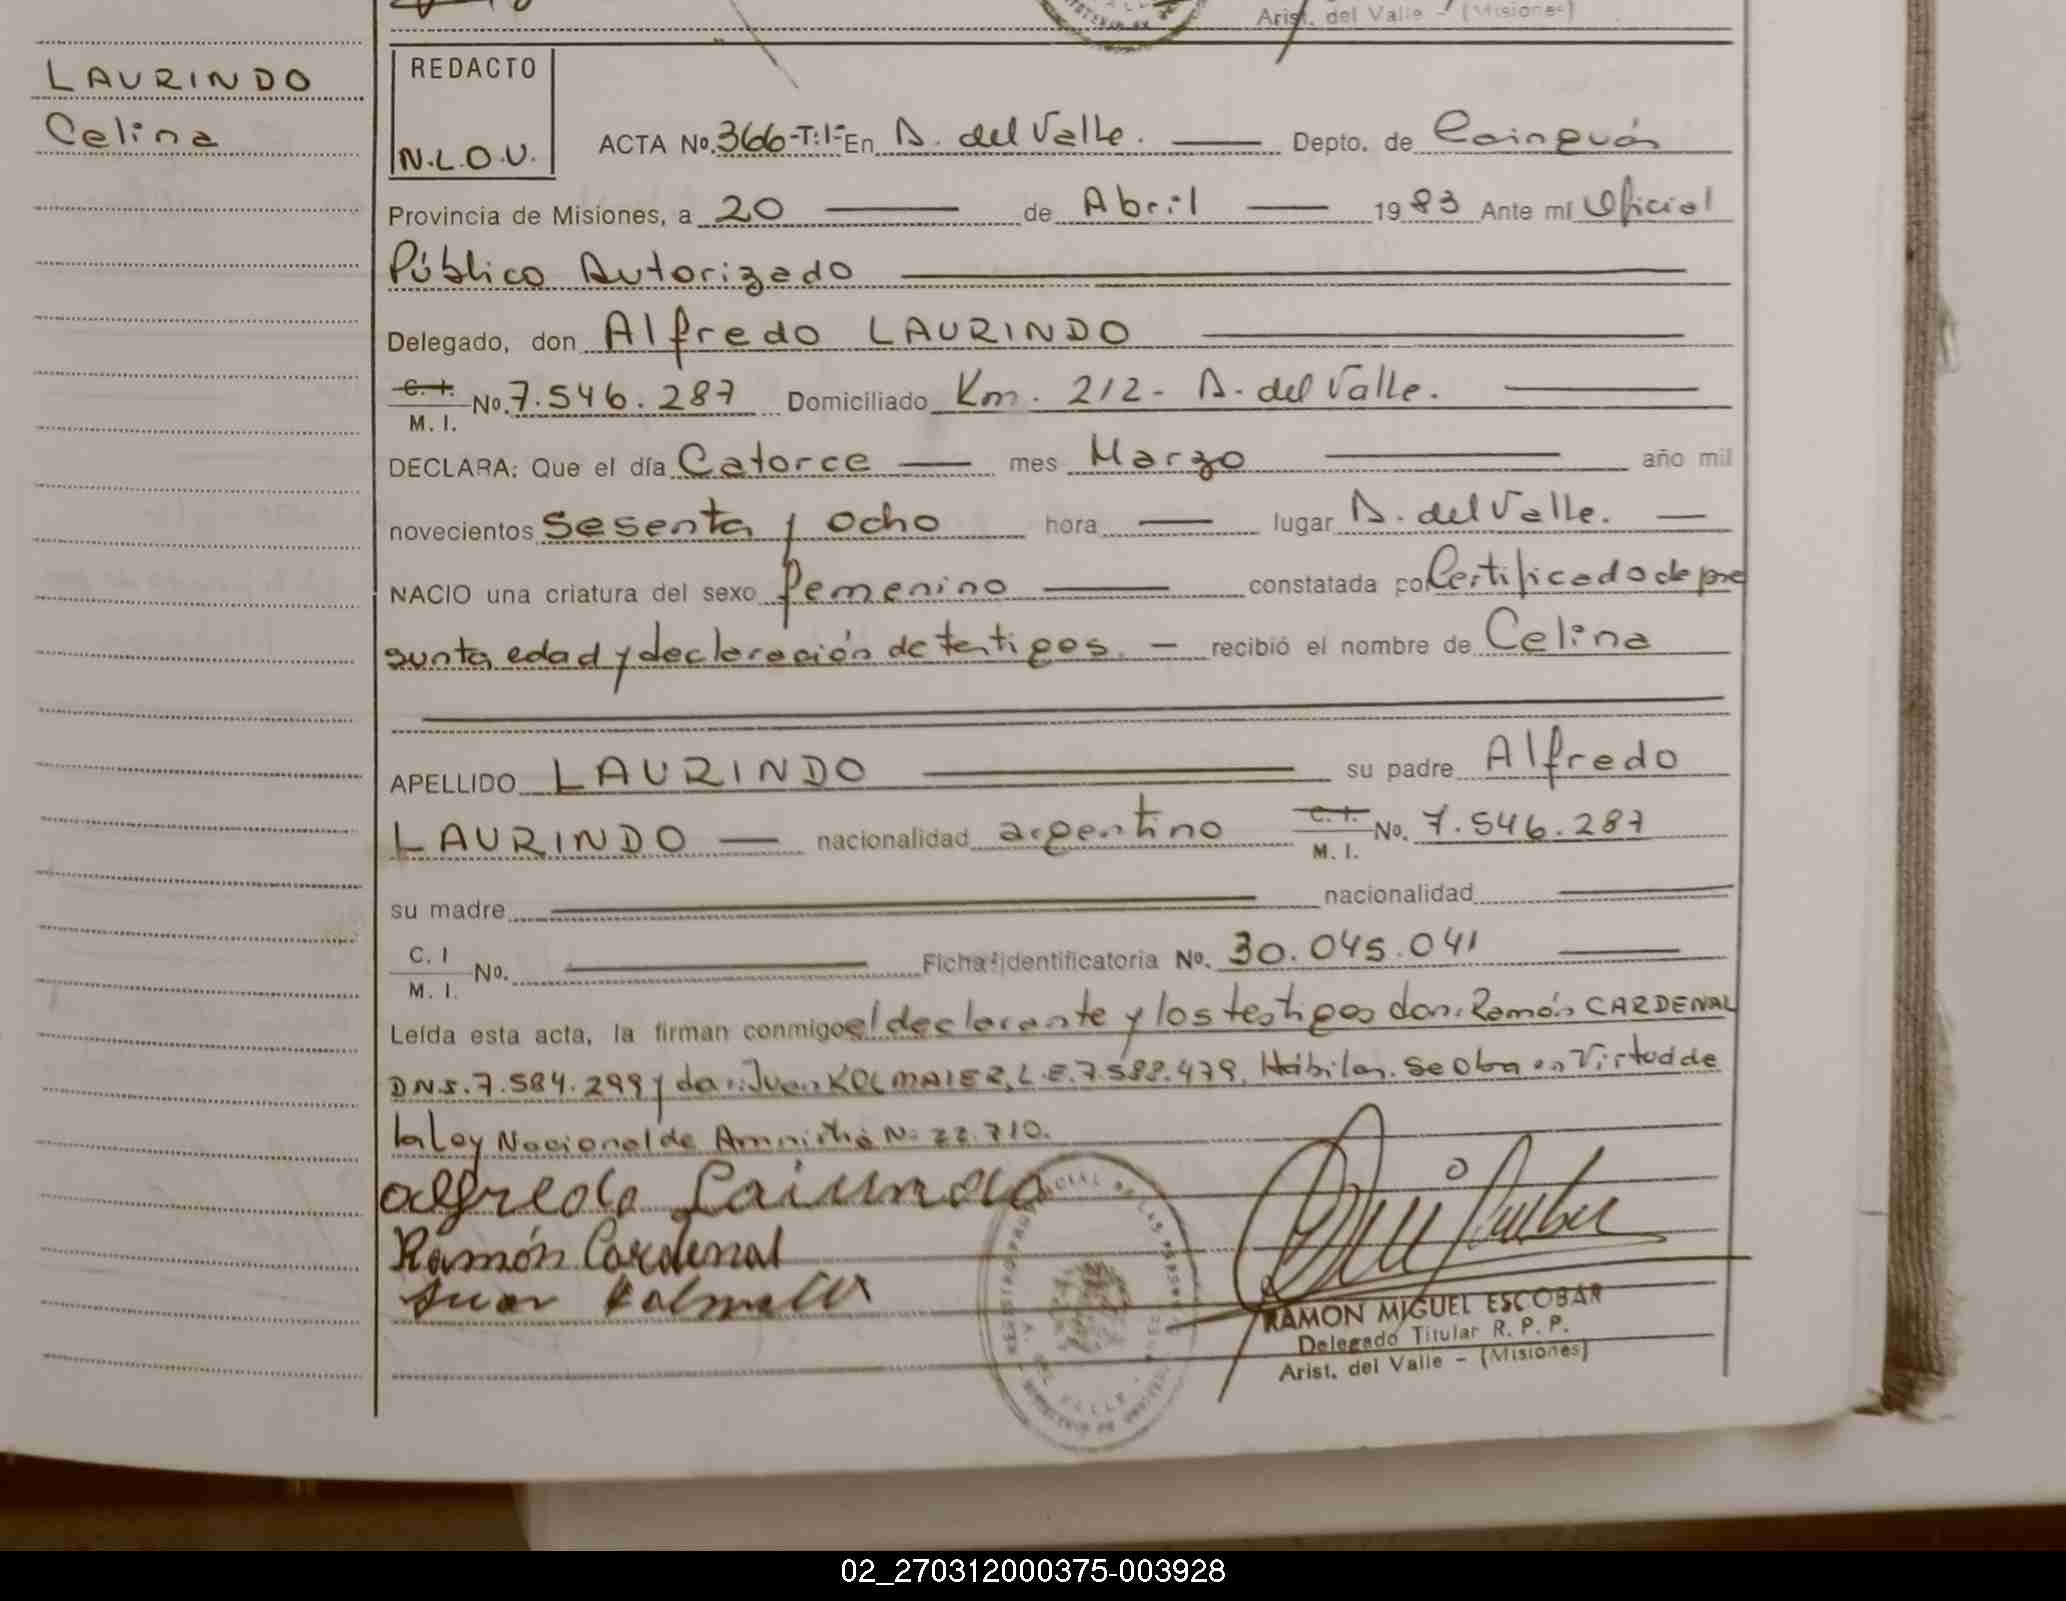 Arist. del Valle - (Misiones)
LAURINDO
Celina
REDACTO
N.L.O.U.
ACTA No. 366-T:I- En A. del Valle. Depto. de Cainguás
Provincia de Misiones, a 20 de Abril 1983 Ante mí Oficial
Público Autorizado
Delegado, don Alfredo LAURINDO
C. I. M. I. No. 7.546.287 Domiciliado Km. 212- A. del Valle.
DECLARA: Que el día Catorce mes Marzo año mil
novecientos Sesenta y ocho hora lugar A. del Valle.
NACIO una criatura del sexo femenino constatada por Certificado de pre
sunta edad y declaración de testigos. recibió el nombre de Celina
APELLIDO LAURINDO su padre Alfredo
LAURINDO nacionalidad argentino C. I. M. I. No. 7.546.287
su madre nacionalidad
C. I M. I. No. Ficha identificatoria No. 30.045.041
Leída esta acta, la firman conmigo el declarante y los testigos don: Ramón CARDENAL
D.N.I. 7.584.299 y don: Juan KOLMAIER, L.E. 7.588.479, Hábiles. Se Obra en Virtud de
la Ley Nacional de Amnistía Nº 22.710.
alfredo Laiundo
Ramón Cardenal
Juan
RAMON MIGUEL ESCOBAR
Delegado Titular R. P. P.
Arist. del Valle - (Misiones)
02_270312000375-003928